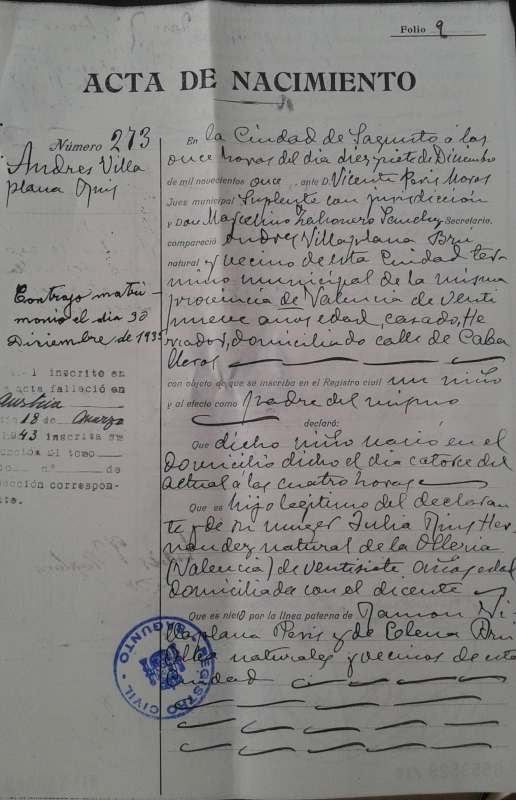 Folio 9
ACTA DE NACIMIENTO
Número 273
Andres Villa
plana
Contrajo matri-
monio el dia 30
Diciembre de 1935
l inscrito en
acta falleció en
Austria
18 de Marzo
1943 inscrita su
ucción al tomo
nº de
acción correspon-
te.
En la Ciudad de Sagunto á las
once horas del dia diez y siete de Diciembre
de mil novecientos once, ante D. Vicente Peris
Juez municipal Suplente con jurisdicción
y Don Marcelino Zahonero Sanchez Secretario,
compareció Andres Villaplana Brú
natural y vecino de esta Ciudad ter-
mino municipal de la misma
provincia de Valencia de venti
nueve años edad, casado, He-
rrador, domiciliado calle de Caba
lleros
con objeto de que se inscriba en el Registro civil un niño
y al efecto como padre del mismo
declaró:
Que dicho niño nació en el
domicilio dicho el dia catorce del
actual á las cuatro horas
Que es hijo legitimo del declaran
te y de su muger Julia Her-
nandez natural de la Olleria
(Valencia) de ventisiete años edad
domiciliada con el dicente
Que es nieto por la línea paterna de Ramon Vi
llaplana Peris y de Elena Bru
naturales y vecinos de esta
Ciudad
REGISTRO CIVIL - SAGUNTO